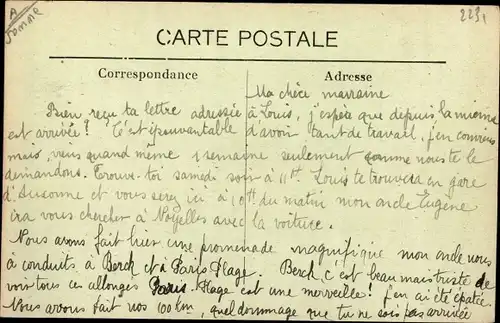 A
Somme
2231
CARTE POSTALE
Correspondance
Adresse
Ma chère marraine
Bien reçu ta lettre adressée à Louis, j'espère que depuis la mienne
est arrivée? C'est épouvantable d'avoir tant de travail, j'en conviens
mais, viens quand même 1 semaine seulement comme nous te le
demandons. Trouve-toi samedi soir à 11H. Louis te trouvera en gare
d' et vous serez ici à 10H du matin mon oncle Eugène
ira vous chercher à Noyelles avec la voiture.
Nous avons fait hier une promenade magnifique mon oncle nous
à conduits à Berck et à Paris Plage. Berck, c'est beau mais triste de
voir tous ces allongés Paris-Plage est une merveille! j'en ai été épatée.
Nous avons fait nos 100 km, quel dommage que tu ne sois pas arrivée